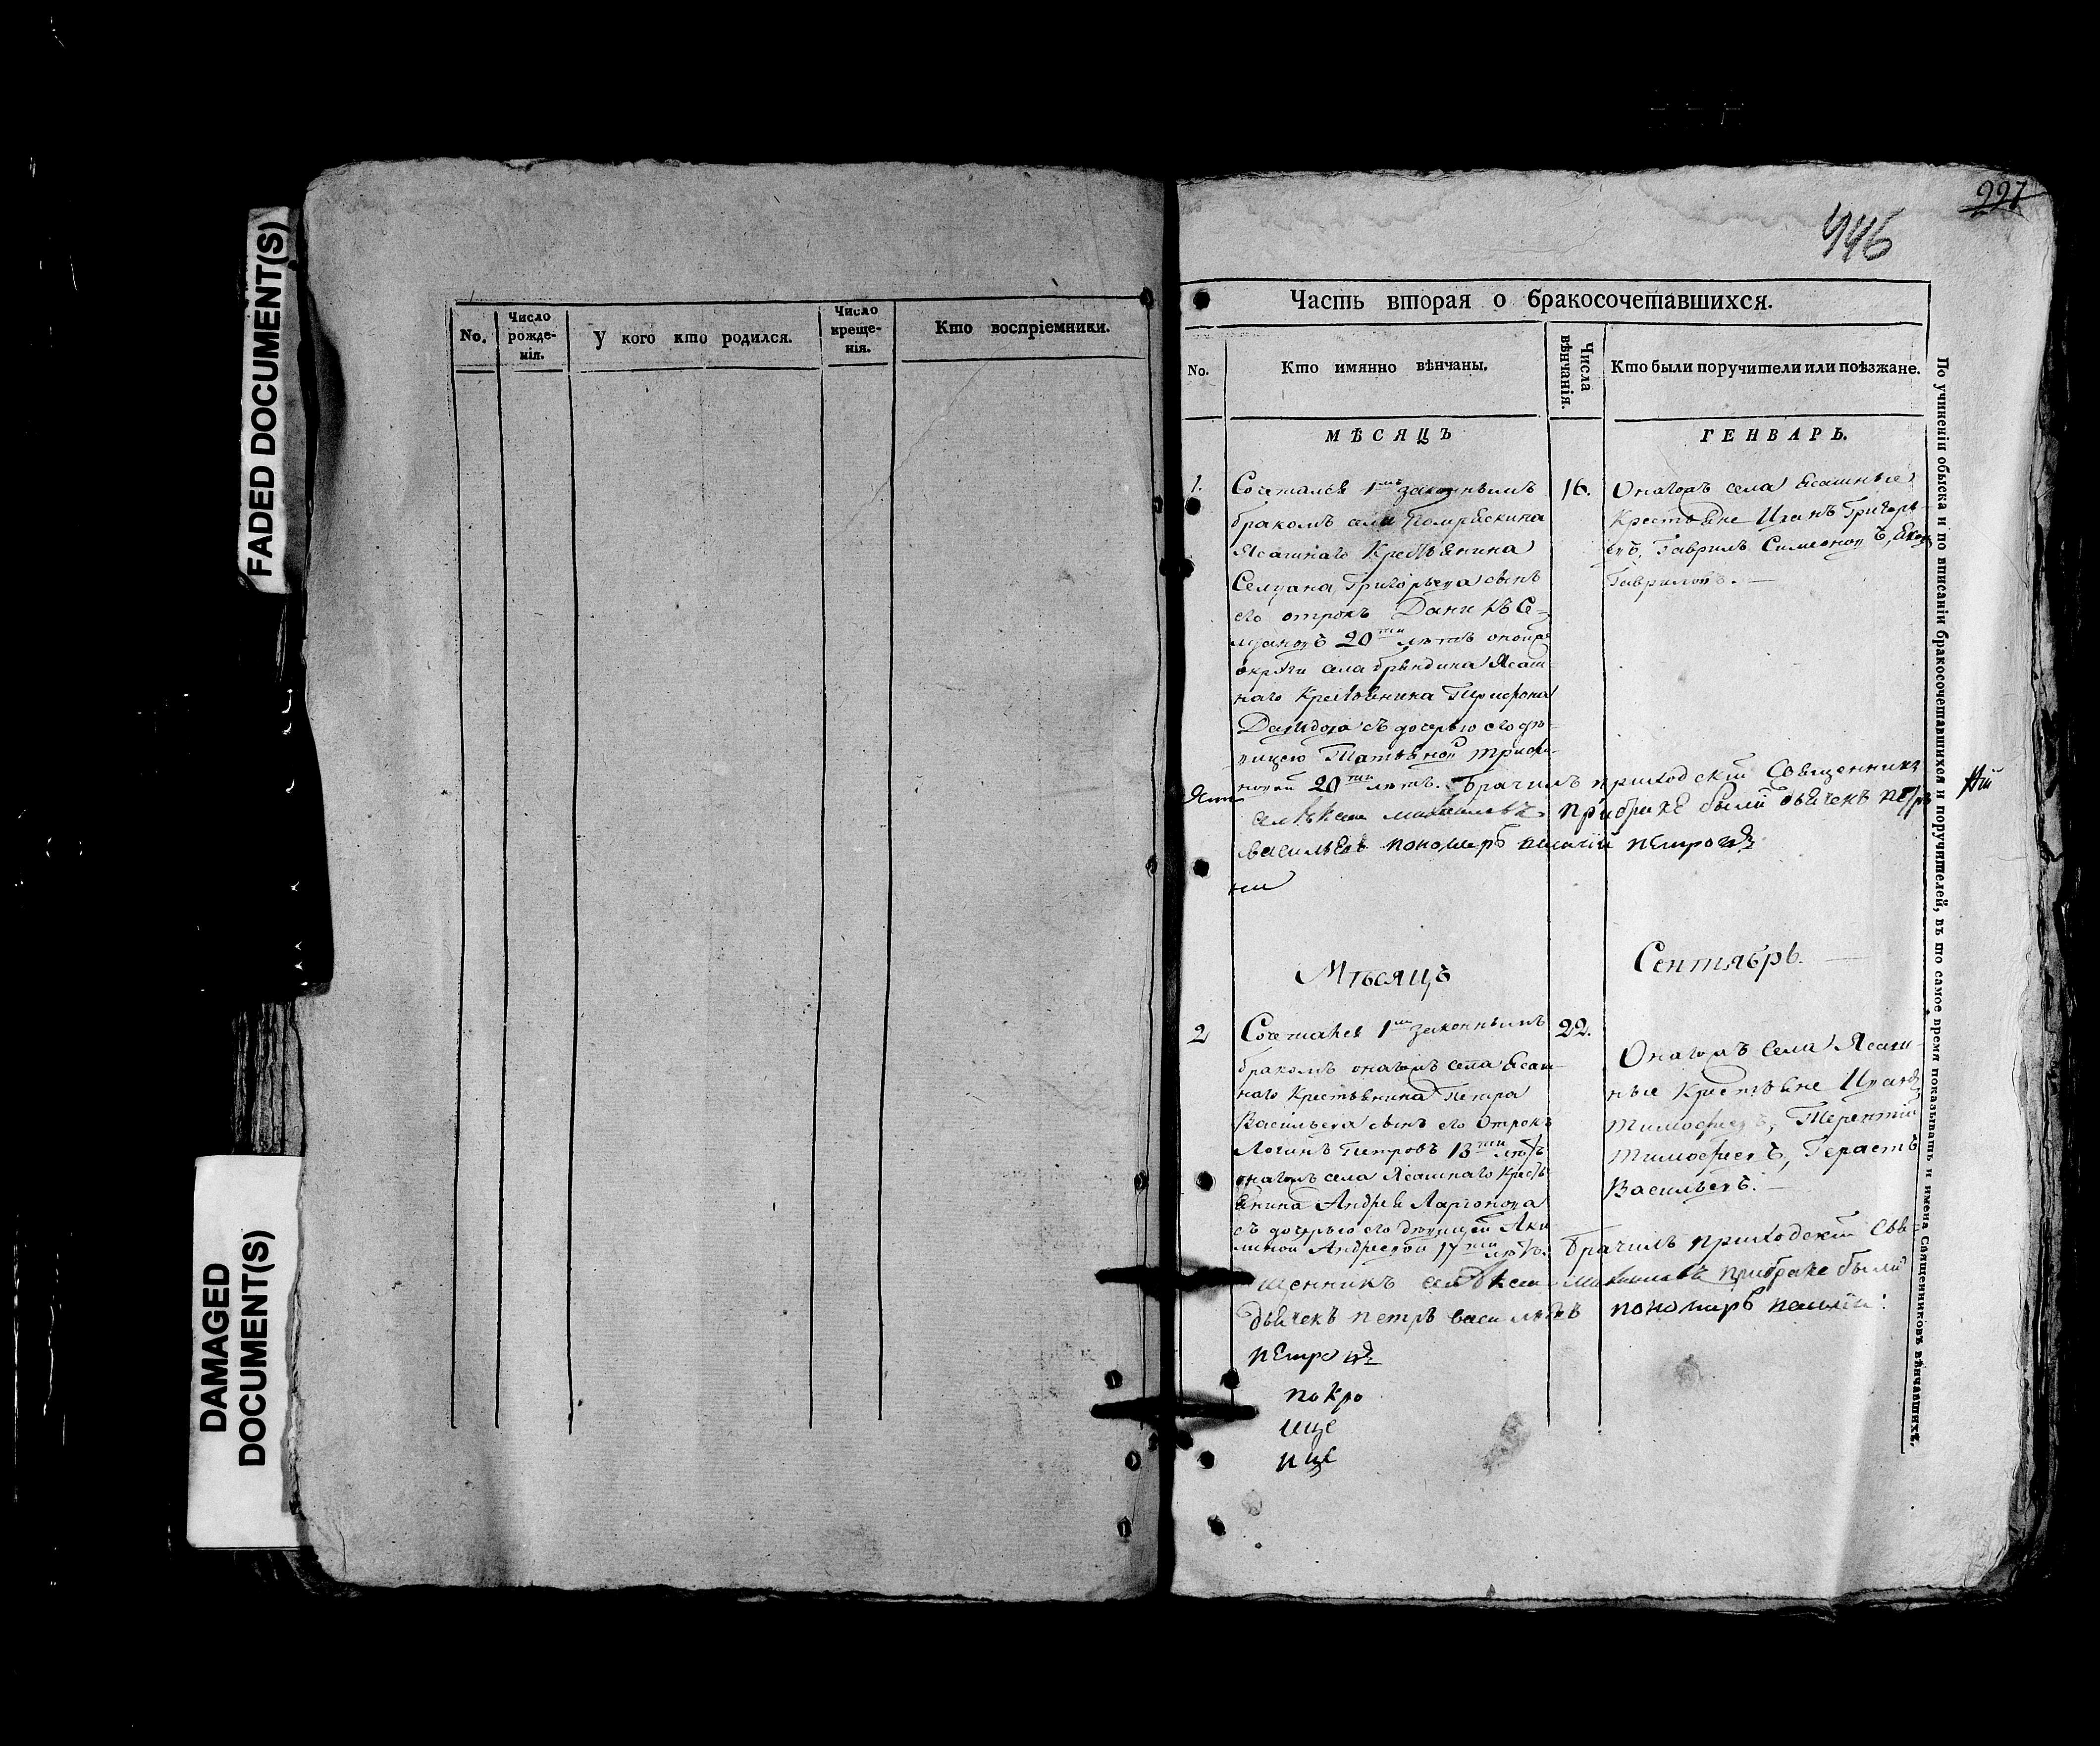 FADED DOCUMENT(S)
DAMAGED
DOCUMENT(S)
No.
Число
рожде-
нія.
У кого кто родился.
Число
креще-
нія.
Кто воспріемники.
227
946
Часть вторая о бракосочетавшихся.
No.
Кто имянно вѣнчаны.
Числа
вѣнчанія.
Кто были поручители или поѣзжане.
МѢСЯЦЪ
ГЕНВАРЬ.
1.
Сочетался 1мъ законнымъ
бракомъ села
Ясашнаго Крестьянина
Селуана Григорьева сынъ
его отрокъ
20ти лѣтъ
округи села Ясаш-
наго Крестьянина
Давидова съ дочерью его дѣ-
вицею Татьяной
20ти лѣтъ. Брачилъ приходскій Священникъ
при браке были дьячекъ
Васильевъ пономарь Петровъ
16.
Онагожъ села Ясашные
Крестьяне Иванъ Григорь-
евъ, Гаврилъ Симеоновъ,
Гавриловъ.
Мѣсяцъ
Сентябрь.
2
Сочетался 1мъ законнымъ
бракомъ онагожъ села Ясаш-
наго Крестьянина Петра
Васильева сынъ его Отрокъ
Логинъ Петровъ 13ти лѣтъ
онагожъ села Ясашнаго Кресть-
янина Андрея Ларионова
съ дочерью его девицей Аки
линой Андреевой 17ти лѣтъ. Брачилъ приходскій Свя-
щенникъ при браке были
дьячекъ петръ васильевъ пономарь
петровъ
покро
22.
Онагожъ села Ясаш-
ные Крестьяне Иванъ
Тимофеевъ, Терентій
Тимофеевъ, Герасимъ
Васильевъ.
По учиненіи обыска и по вписаніи бракосочетавшихся и поручителей, въ то самое время показывать и имена Священниковъ вѣнчавшихъ.